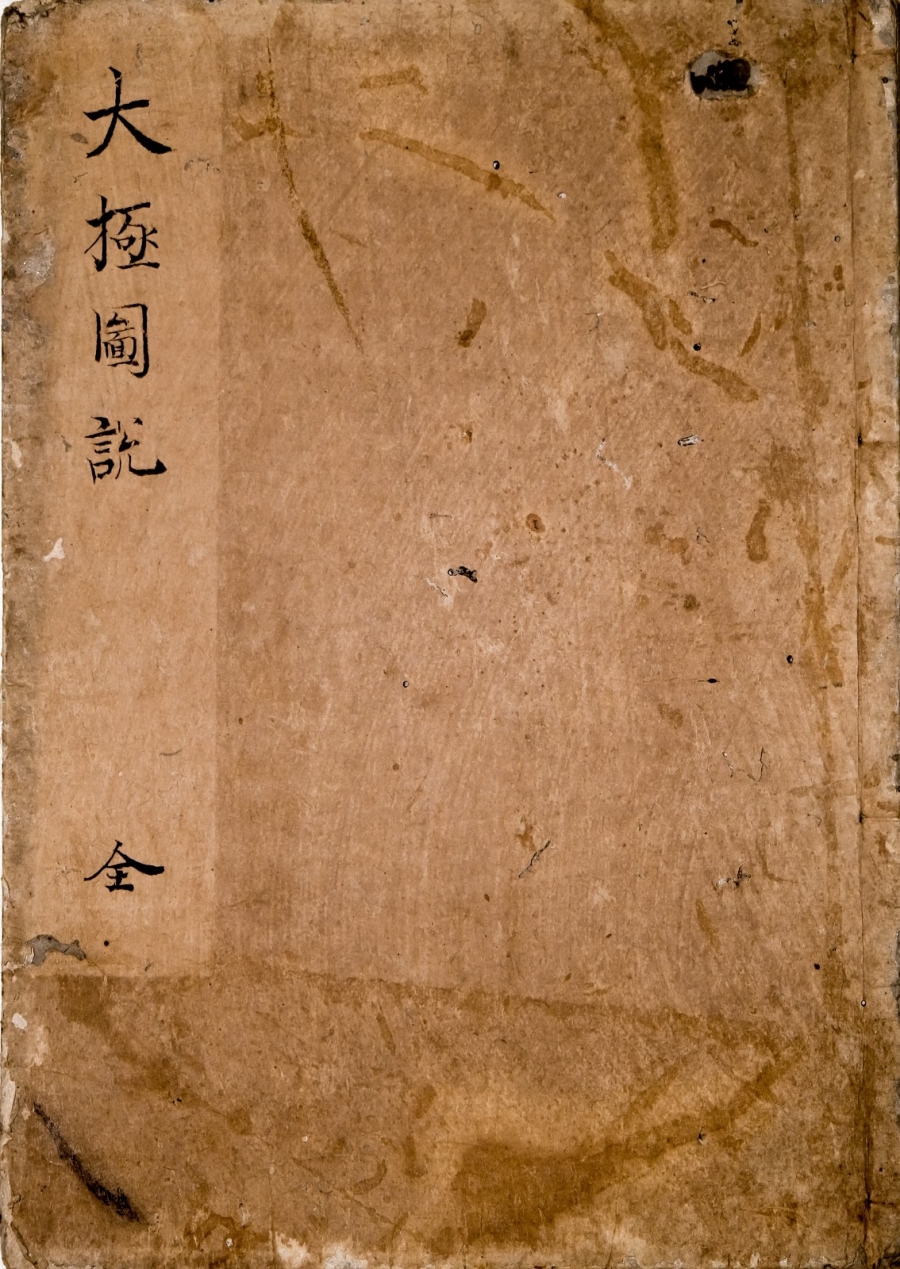 大極圖說
全